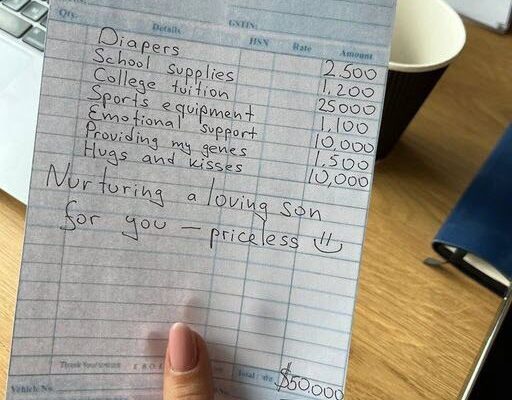 GSTIN:
Qty. Details HSN Rate Amount
Diapers 2,500
School supplies 1,200
College tuition 25000
Sports equipment 1,100
Emotional support 10,000
Providing my genes 1,500
Hugs and kisses 10,000
Nurturing a loving son
for you – priceless
Total $50.000
Vehicle No.